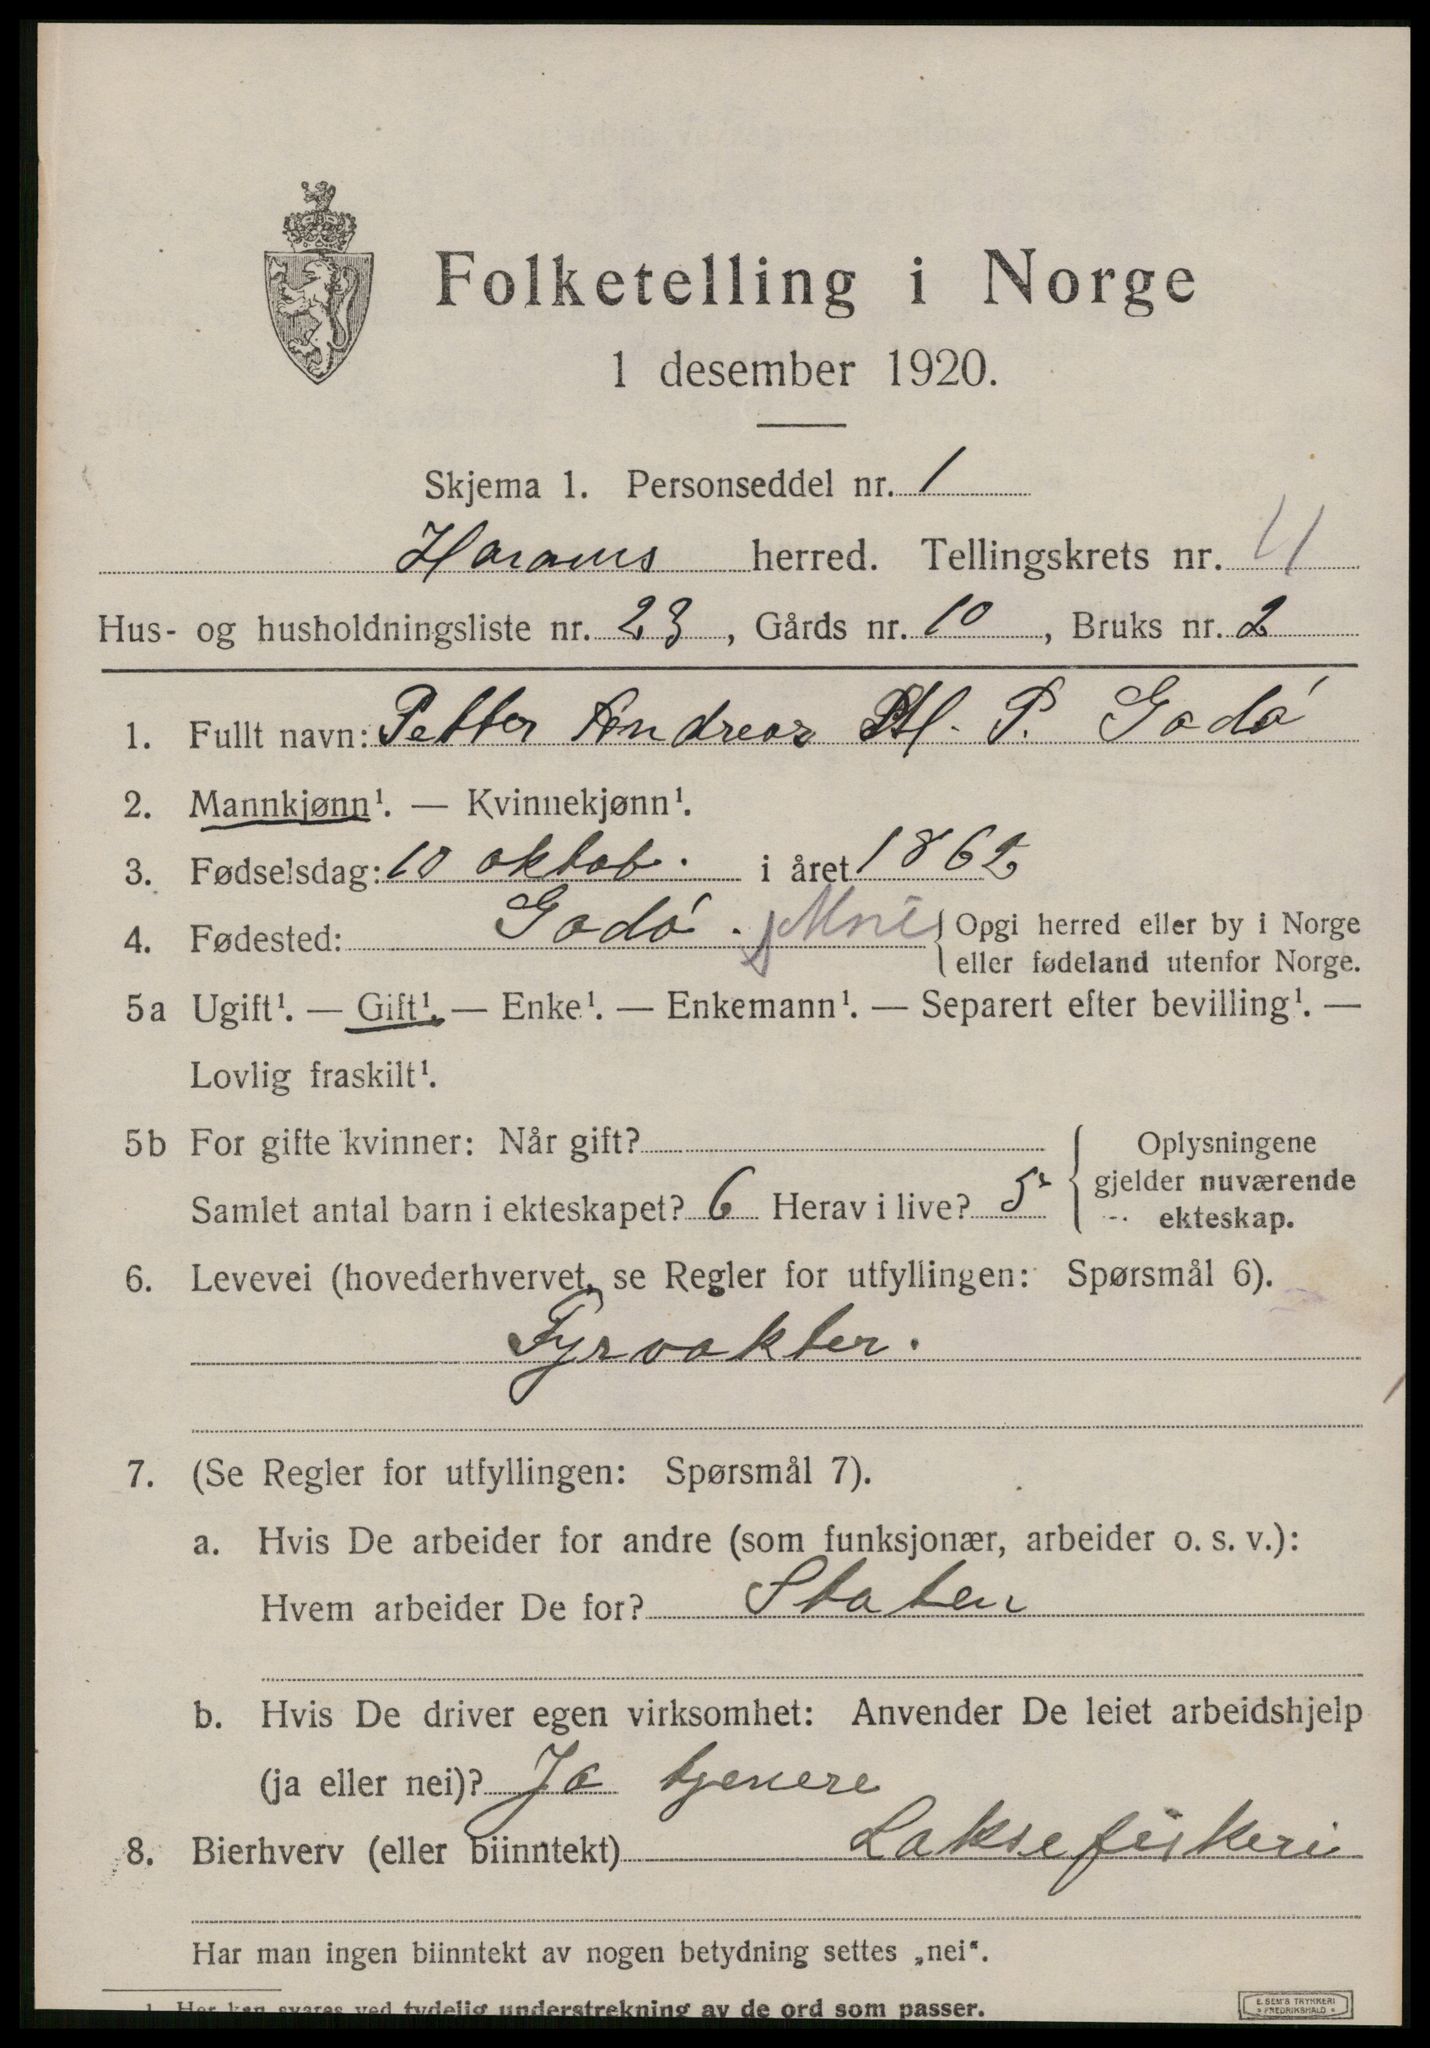 Folketelling i Norge
1 desember 1920.
Skjema 1. Personseddel nr. 1
Harams herred. Tellingskrets nr. 4
Hus- og husholdningsliste nr. 23, Gårds nr. 10, Bruks nr. 2
1. Fullt navn: Petter Andreas M. P. Godó
2. Mannkjønn¹. — Kvinnekjønn¹.
3. Fødselsdag: 10 oktob. i året 1862
4. Fødested: Godó. { Opgi herred eller by i Norge
eller fødeland utenfor Norge.
5a Ugift¹. — Gift¹. — Enke¹. — Enkemann¹. — Separert efter bevilling¹. —
Lovlig fraskilt¹.
5b For gifte kvinner: Når gift? { Oplysningene
gjelder nuværende
ekteskap.
Samlet antal barn i ekteskapet? 6 Herav i live? 5
6. Levevei (hovederhvervet, se Regler for utfyllingen: Spørsmål 6).
Fyrvakter.
7. (Se Regler for utfyllingen: Spørsmål 7).
a. Hvis De arbeider for andre (som funksjonær, arbeider o. s. v.):
Hvem arbeider De for? Staten
b. Hvis De driver egen virksomhet: Anvender De leiet arbeidshjelp
(ja eller nei)? Ja tjenere
8. Bierhverv (eller biinntekt) Laksefiskeri
Har man ingen biinntekt av nogen betydning settes „nei“.
1. Her kan svares ved tydelig understrekning av de ord som passer.
E. SEM'S TRYKKERI
FREDRIKSHALD